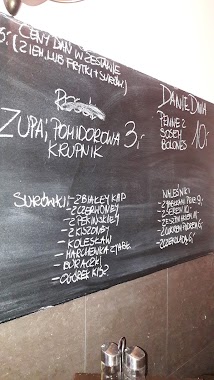 CENY DAŃ W ZESTAWIE
5,- (ZIEM. LUB FRYTKI + SURÓW.)
ZUPA; POMIDOROWA 3,-
KRUPNIK
DANIE DNIA
PENNE Z
SOSEM 10,-
BOLONES
SURÓWKI: - Z BIAŁEJ KAP
- Z CZERWONEJ
- Z PEKIŃSKIEJ
- Z KISZONEJ
- KOLESŁAW
- MARCHEWKA Z JABŁ
- BURACZKI
- OGÓREK KISZ
NALEŚNIKI
- Z SEREM
- Z DŻEMEM
- Z CZEKOLADĄ